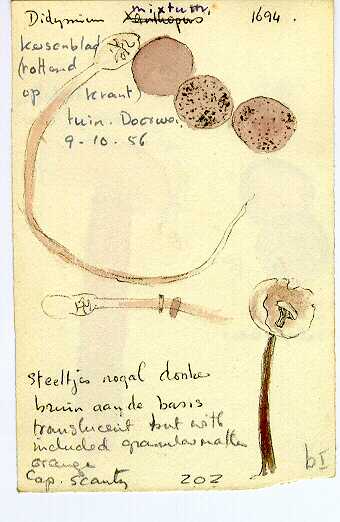 mixtum.
Didymium Xanthopus 1694.
kersenblad
(rottend
op krant)
tuin. Doorwe.
9-10.56
Steeltjes nogal donker
bruin aan de basis
translucent but with
included granular matter
orange
Cap. scanty 202
b I